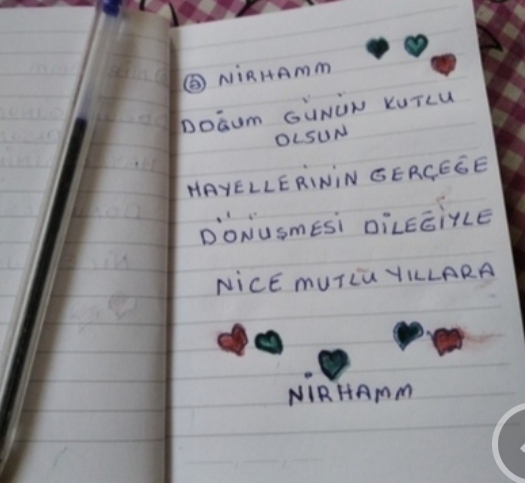 @ NİRHAMM
DOĞUM GÜNÜN KUTLU
OLSUN
HAYELLERİNİN GERÇEĞE
DÖNÜŞMESİ DİLEĞİYLE
NİCE MUTLU YILLARA
NİRHAMM